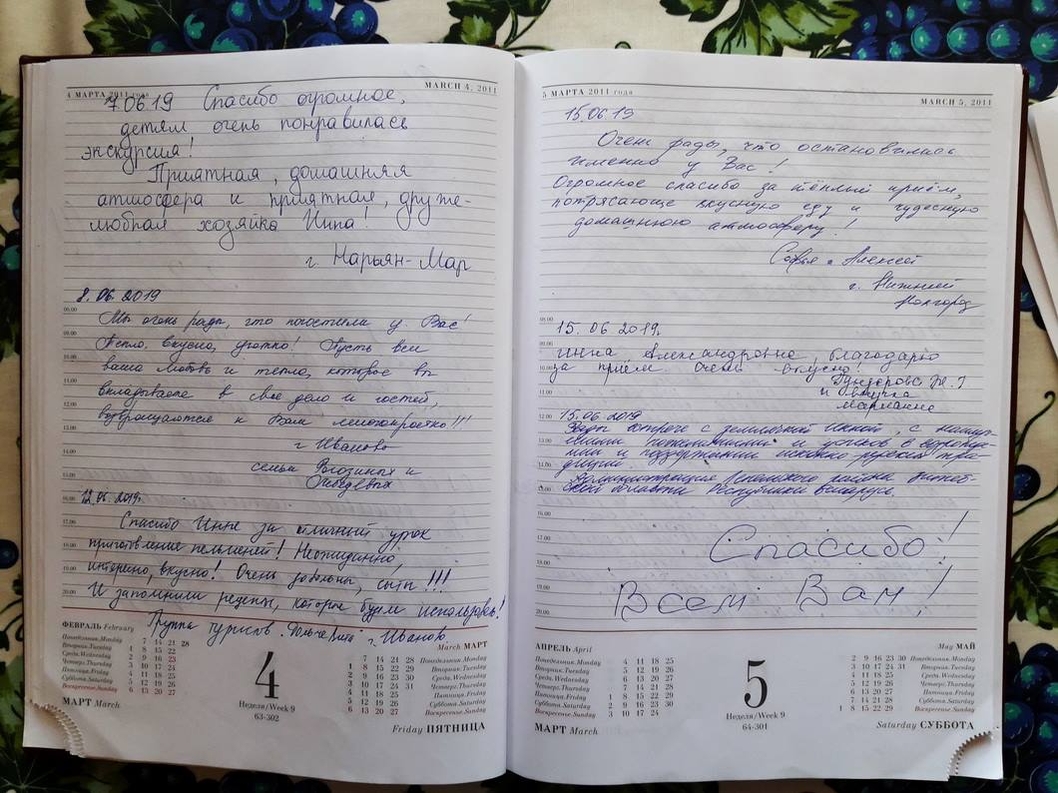 4 МАРТА 2011 года MARCH 4, 2011
7.06.19 Спасибо огромное,
детям очень понравилась
экскурсия!
Приятная, домашняя
атмосфера и приятная, друже-
любная хозяйка Инна!
г Нарьян-Мар
8.06.2019
Мы очень рады, что погостили у Вас!
Тепло, вкусно, уютно! Пусть вся
ваша любовь и тепло, которое вы
вкладываете в свое дело и гостей,
возвращаются к Вам многократно!!!
г Иваново
семьи и
12.06.2019г.
Спасибо Инне за отличный урок
приготовление пельменей! Неожиданно,
интересно, вкусно! Очень довольны, сыты!!!
И запомнили рецепты, которые будем использовать!
Группа туристов г. Иваново.
09.00
10.00
11.00
12.00
13.00
14.00
15.00
16.00
17.00
18.00
19.00
20.00
ФЕВРАЛЬ February
Понедельник.Monday 7 14 21 28
Вторник.Tuesday 1 8 15 22
Среда.Wednesday 2 9 16 23
Четверг.Thursday 3 10 17 24
Пятница.Friday 4 11 18 25
Суббота.Saturday 5 12 19 26
Воскресенье.Sunday 6 13 20 27
МАРТ March
4
Неделя/Week 9
63-302
March МАРТ
7 14 21 28 Понедельник.Monday
1 8 15 22 29 Вторник.Tuesday
2 9 16 23 30 Среда.Wednesday
3 10 17 24 31 Четверг.Thursday
4 11 18 25 Пятница.Friday
5 12 19 26 Суббота.Saturday
6 13 20 27 Воскресенье.Sunday
Friday ПЯТНИЦА
5 МАРТА 2011 года MARCH 5, 2011
15.06.19
Очень рады, что остановились
именно у Вас!
Огромное спасибо за тёплый приём,
потрясающе вкусную еду и чудесную
домашнюю атмосферу!
Софья и Алексей
г. Нижний
Новгород
15.06 2019г.
Инна Александровна, благодарю
за приём. Очень вкусно!
и внучка
Марианна
15.06 2019
Рады встрече с землячкой Инной, с наилуч-
шими пожеланиями и успехов в возрожде-
нии и поддержании исконно русских тра-
диций.
Администрация района Витеб-
ской области Республики Беларусь.
Спасибо!
Всем Вам!
09.00
10.00
11.00
12.00
13.00
14.00
15.00
16.00
17.00
18.00
19.00
20.00
АПРЕЛЬ April
Понедельник.Monday 4 11 18 25
Вторник.Tuesday 5 12 19 26
Среда.Wednesday 6 13 20 27
Четверг.Thursday 7 14 21 28
Пятница.Friday 1 8 15 22 29
Суббота.Saturday 2 9 16 23 30
Воскресенье.Sunday 3 10 17 24
МАРТ March
5
Неделя/Week 9
64-301
May МАЙ
2 9 16 23 30 Понедельник.Monday
3 10 17 24 31 Вторник.Tuesday
4 11 18 25 Среда.Wednesday
5 12 19 26 Четверг.Thursday
6 13 20 27 Пятница.Friday
7 14 21 28 Суббота.Saturday
1 8 15 22 29 Воскресенье.Sunday
Saturday СУББОТА